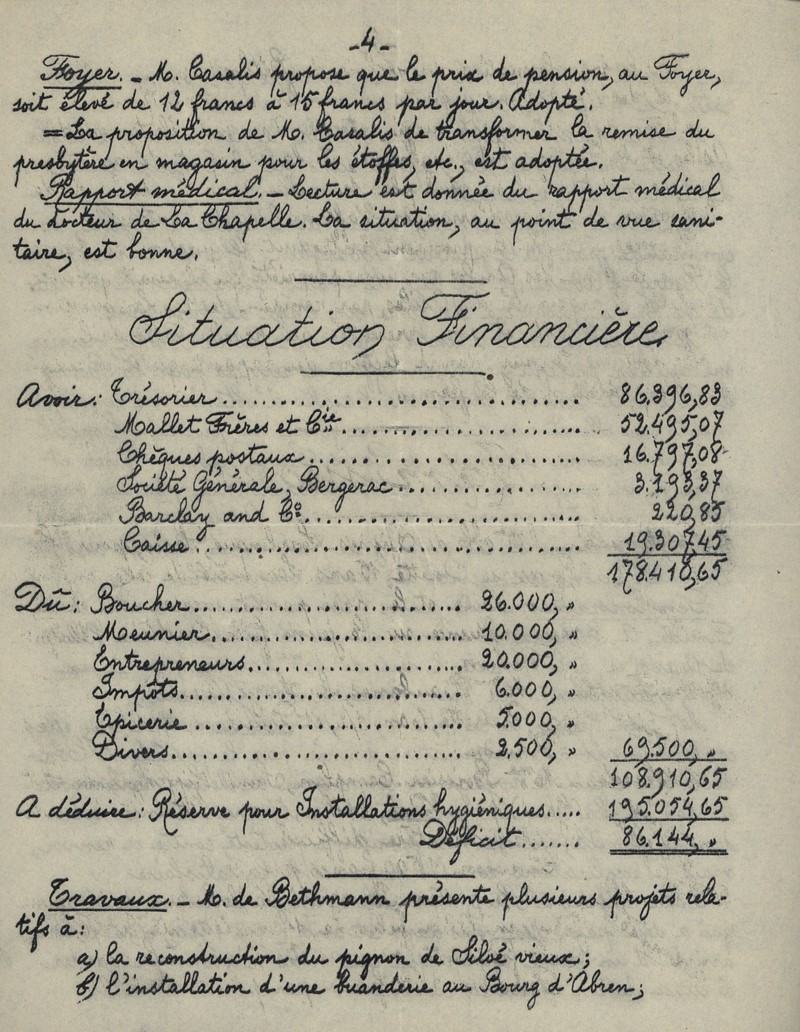 -4-
Foyer. - M. Casalis propose que le prix de pension, au Foyer,
soit élevé de 12 francs à 15 francs par jour. Adopté.
= La proposition de M. Casalis de transformer la remise du
presbytère en magasin pour les étoffes, etc., est adoptée.
Rapport médical. - Lecture est donnée du rapport médical
du docteur de La Chapelle. La situation, au point de vue sani-
taire, est bonne.
Situation Financière.
Avoir: Trésorier........ 86.396,83
Mallet Frères et Cie........ 52.495,07
Chèques postaux........ 16.797,08
Société Générale, Bergerac........ 3.193,37
Barclay and Co........ 220,85
Caisse........ 19.307,45
178.410,65
Dû: Boucher........ 26.000, "
Meunier........ 10.000, "
Entrepreneurs........ 20.000, "
Impôts........ 6.000, "
Epicerie........ 5.000, "
Divers........ 2.500, " 69.500, "
108.910,65
A déduire: Réserve pour Installations hygiéniques..... 195.054,65
Déficit....... 86.144, "
Travaux. - M. de Bethmann présente plusieurs projets rela-
tifs à:
a) la reconstruction du pignon de Siloé vieux;
b) l'installation d'une buanderie au Bourg d'Abren;